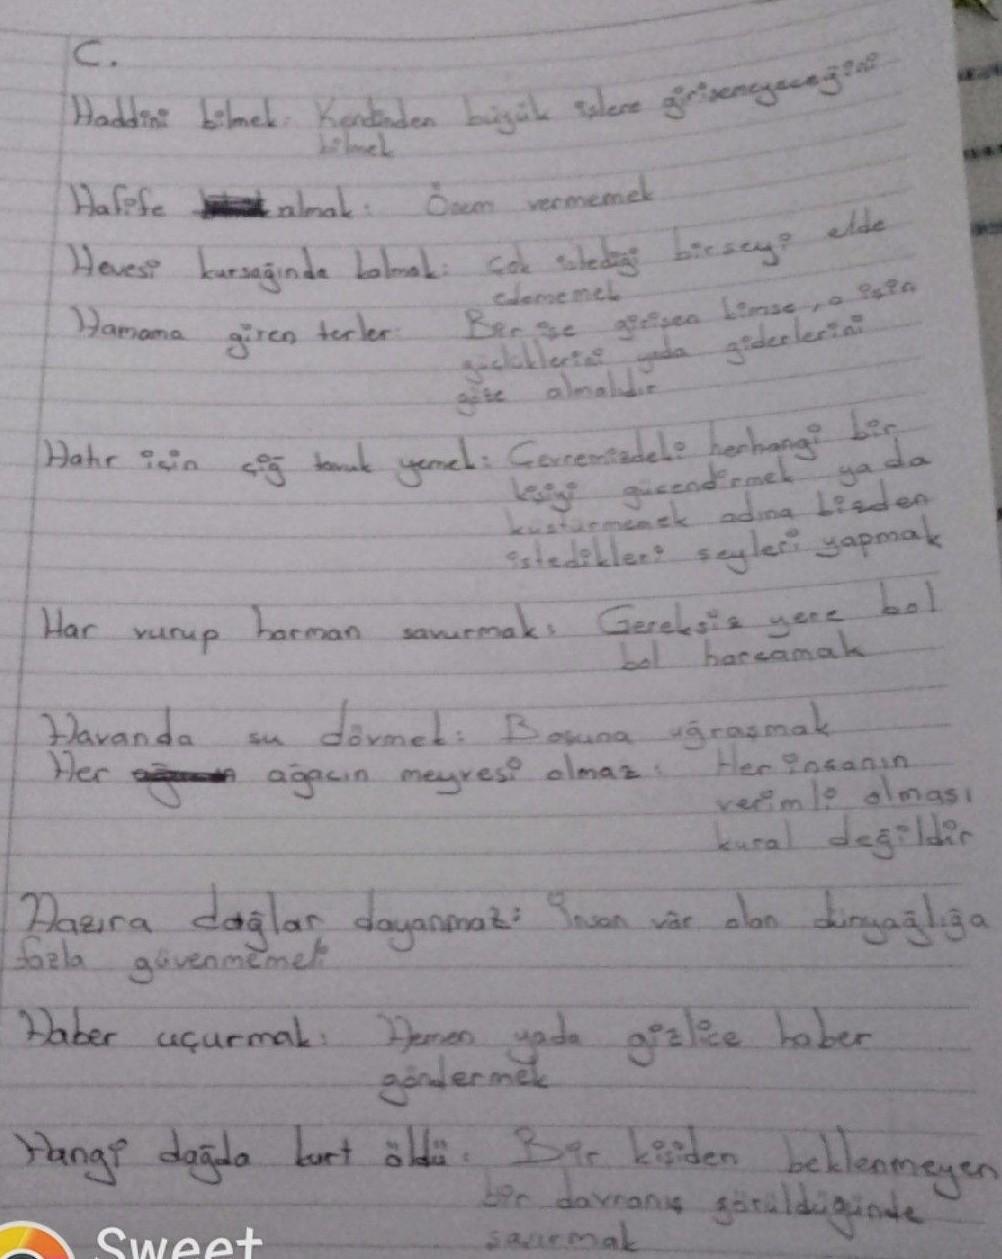 C.
Haddini bilmek: Kendinden büyük işlere girişemeyeceğini
bilmek
Hafife almak: Önem vermemek
Hevesi kursağında kalmak: Çok istediği birşeyi elde
edememek
Hamama giren terler: Bir işe girişen kimse, o işin
güçlüklerini yada giderlerini
göze almalıdır
Hatır için çiğ tavuk yemek: Çevremizdeki herhangi bir
kişiyi gücendirmek ya da
küstürmemek adına bizden
istedikleri şeyleri yapmak
Har vurup harman savurmak: Gereksiz yere bol
bol harcamak
Havanda su dövmek: Boşuna uğraşmak
Her ağacın meyvesi olmaz: Her insanın
verimli olması
kural değildir
Hazıra dağlar dayanmaz: İnsan var olan dünyağlığa
fazla güvenmemek
Haber uçurmak: Hemen yada gizlice haber
göndermek
Hangi dağda kurt öldü: Bir kişiden beklenmeyen
bir davranış görüldüğünde
Sweet